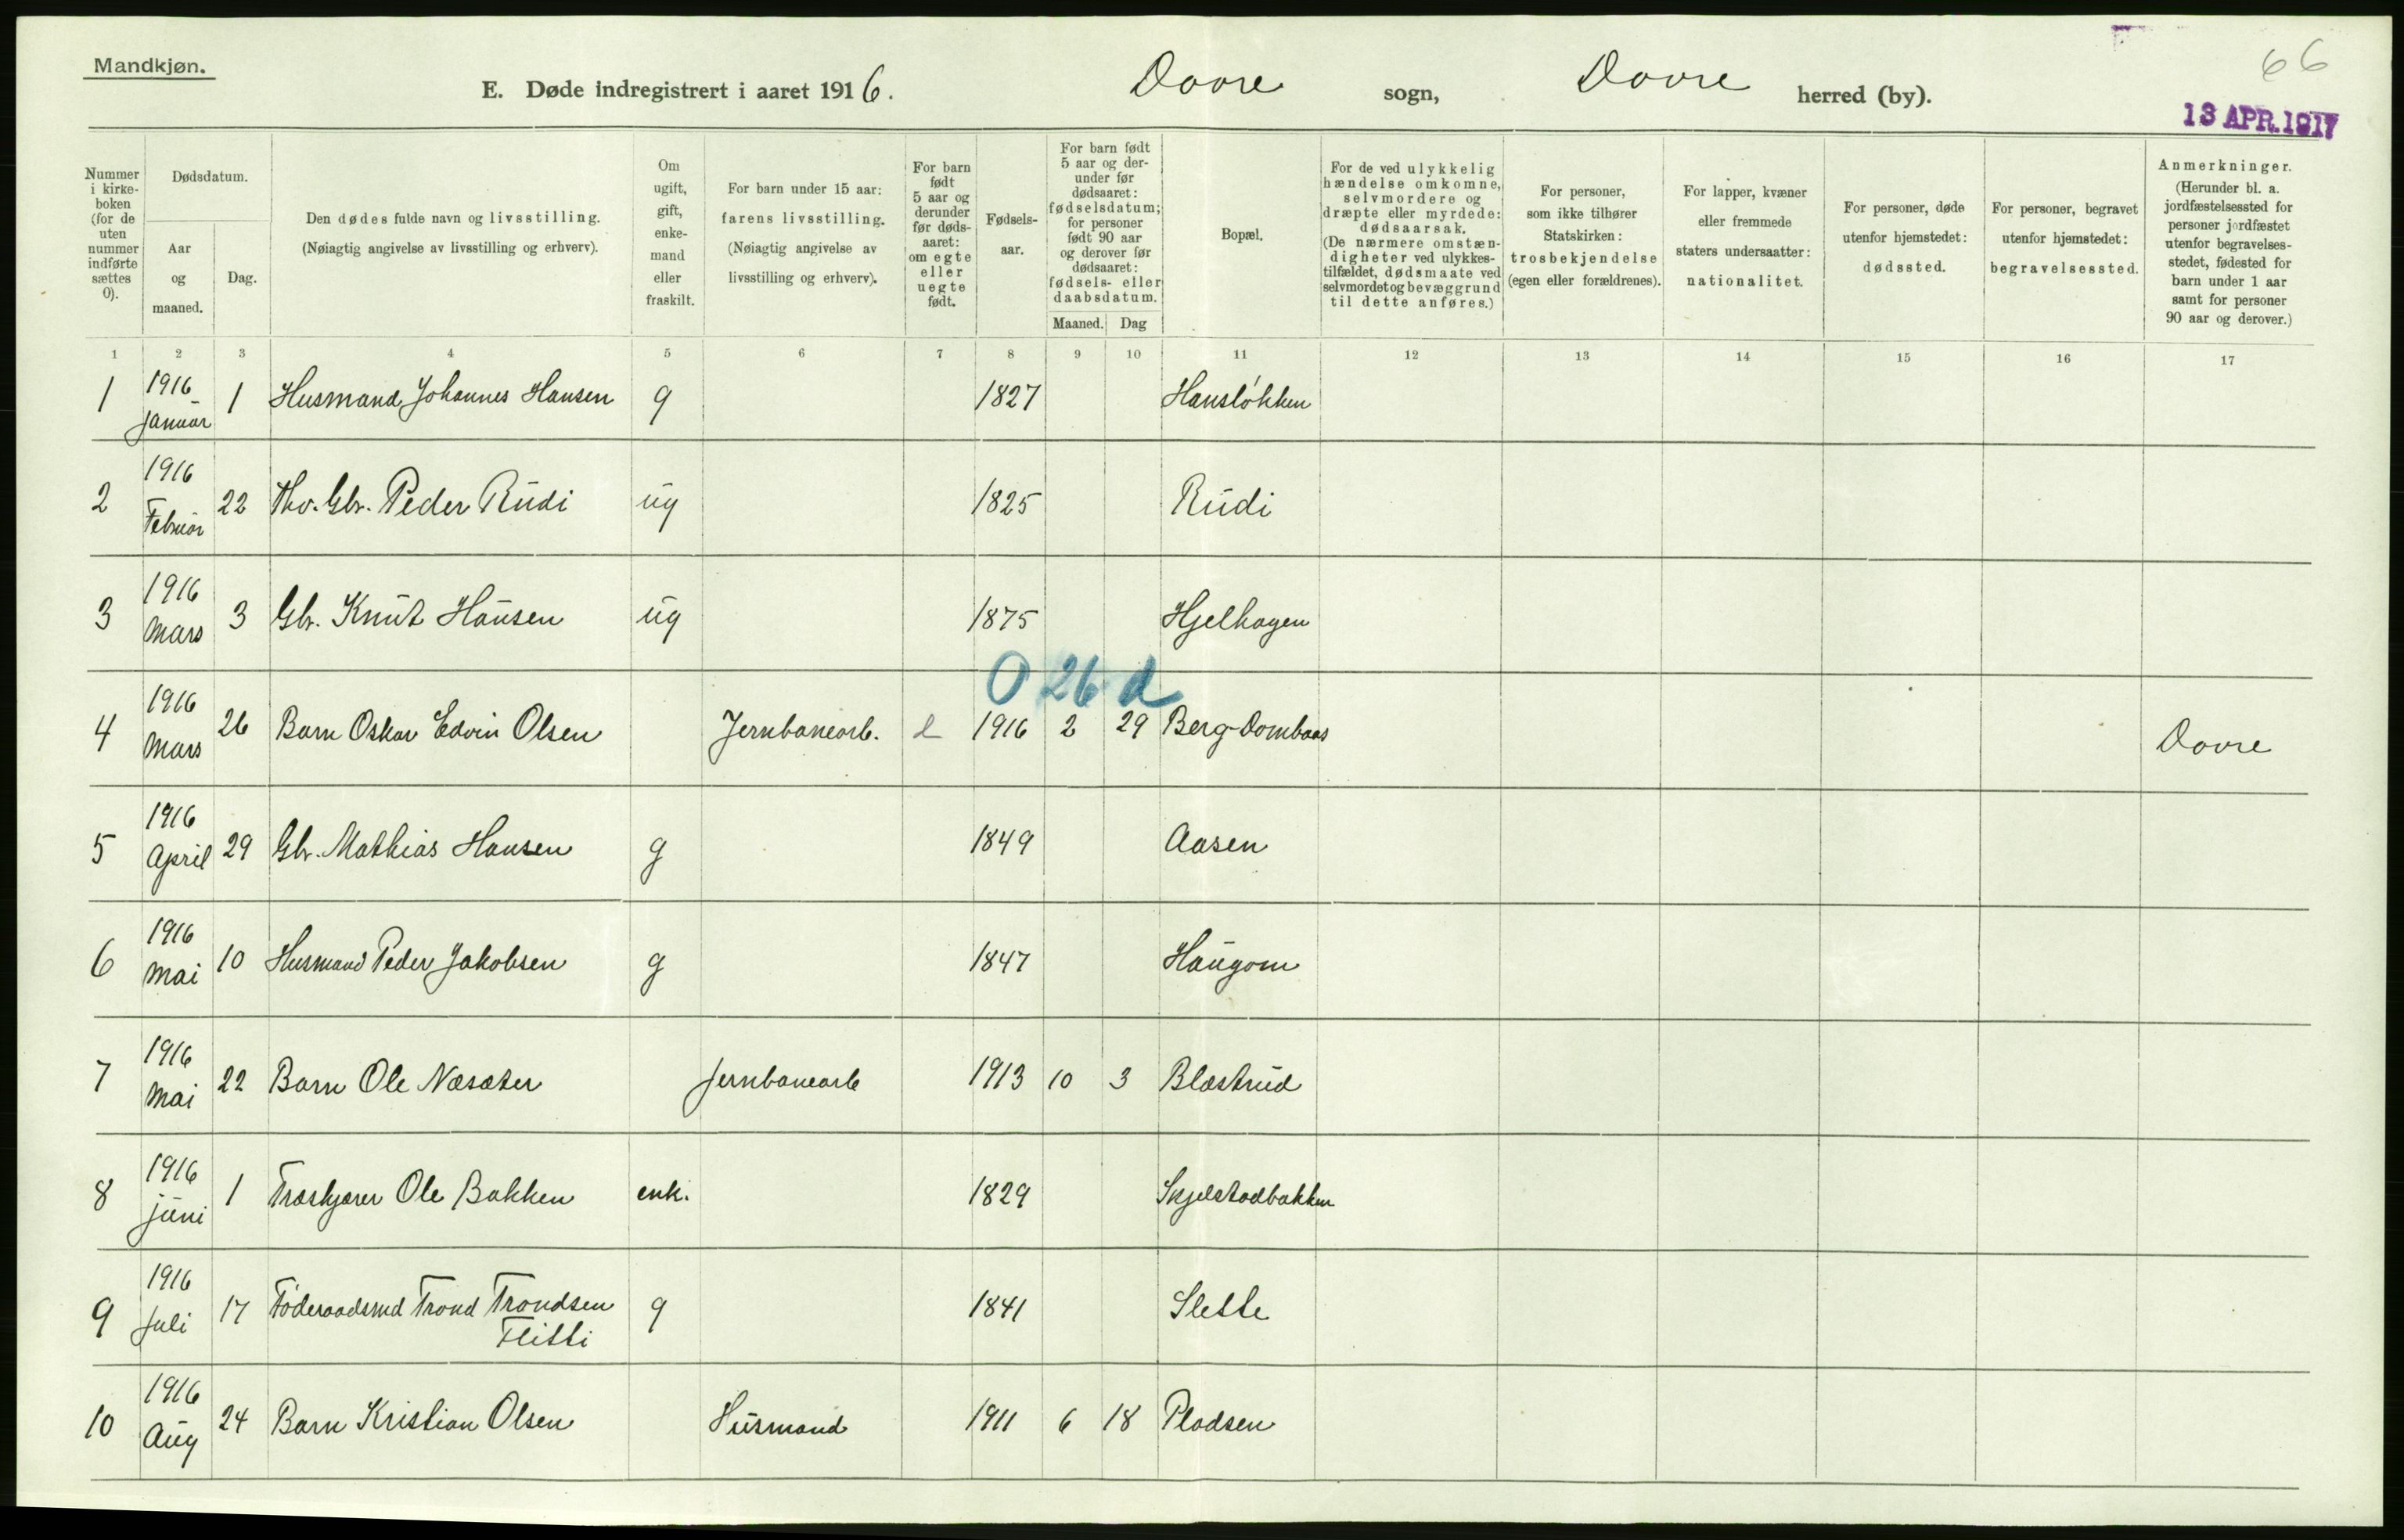 Mandkjøn.
66
E. Døde indregistrert i aaret 1916. Dovre sogn, Dovre herred (by).
13 APR. 1917
Nummer i kirke-boken (for de uten nummer indførte sættes 0).
Dødsdatum.
Aar og maaned.
Dag.
Den dødes fulde navn og livsstilling.
(Nøiagtig angivelse av livsstilling og erhverv).
Om ugift, gift, enke-mand eller fraskilt.
For barn under 15 aar: farens livsstilling. (Nøiagtig angivelse av livsstilling og erhverv).
For barn født 5 aar og derunder før døds-aaret: om egte eller uegte født.
Fødsels-aar.
For barn født 5 aar og der-under før dødsaaret: fødselsdatum; for personer født 90 aar og derover før dødsaaret: fødsels- eller daabsdatum.
Maaned. Dag
Bopæl.
For de ved ulykkelig hændelse omkomne, selvmordere og dræpte eller myrdede: dødsaarsak. (De nærmere omstæn-digheter ved ulykkes-tilfældet, dødsmaate ved selvmordet og bevæggrund til dette anføres.)
For personer, som ikke tilhører Statskirken: trosbekjendelse (egen eller forældrenes).
For lapper, kvæner eller fremmede staters undersaatter: nationalitet.
For personer, døde utenfor hjemstedet: dødssted.
For personer, begravet utenfor hjemstedet: begravelsessted.
Anmerkninger. (Herunder bl. a. jordfæstelsessted for personer jordfæstet utenfor begravelses-stedet, fødested for barn under 1 aar samt for personer 90 aar og derover.)
1 2 3 4 5 6 7 8 9 10 11 12 13 14 15 16 17
1 1916 Januar 1 Husmand Johannes Hansen g 1827 Hansløkken
2 1916 Februar 22 Gbr. Peder Rudi ug 1825 Rudi
3 1916 Mars 3 Gbr. Knut Hansen ug 1875 Hjelhagen
0 26 d
4 1916 Mars 26 Barn Oskar Edvin Olsen Jernbanearb. e 1916 2 29 Berg-Dombaas Dovre
5 1916 April 29 Gbr. Mathias Hansen g 1849 Aasen
6 1916 Mai 10 Husmand Peder Jakobsen g 1847 Haugom
7 1916 Mai 22 Barn Ole Næsæter Jernbanearb 1913 10 3 Blæstrud
8 1916 juni 1 Træskjærer Ole Bakken enk. 1829 Skjelstadbakken
9 1916 Juli 17 Føderaadsmd Trond Trondsen Flitti g 1841 Slette
10 1916 Aug 24 Barn Kristian Olsen Husmand 1911 6 18 Pladsen